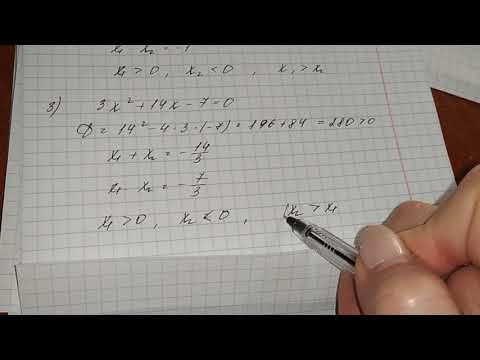 x₁ · x₂ = -1
x₁ > 0, x₂ < 0, x₁ > x₂
3) 3x² + 14x - 7 = 0
D = 14² - 4 · 3 · (-7) = 196 + 84 = 280 > 0
x₁ + x₂ = -14/3
x₁ · x₂ = -7/3
x₁ > 0, x₂ < 0, |x₂ > x₁